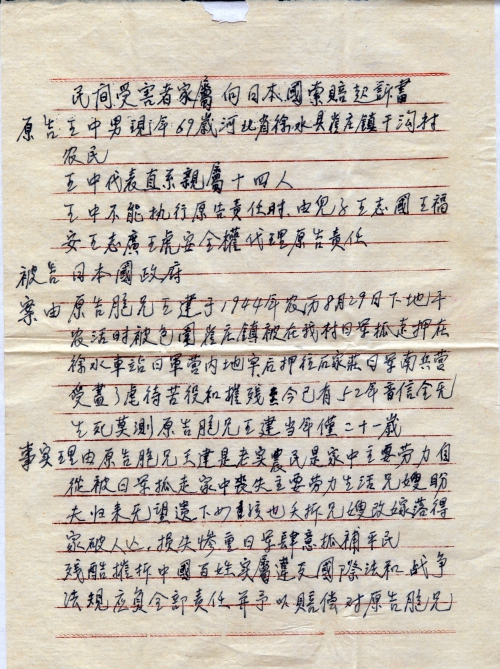 民间受害者家屬向日本國索賠起訴書
原告 王中男現年69歲河北省徐水县崔庄镇干沟村
农民
王中代表直系親屬十四人
王中不能执行原告責任时由兒子王志國王福
安王志廣王虎安全權代理原告責任
被告日本國政府
案由原告胞兄王建于1944年农历8月29日下地干
农活时被包围崔庄鎮被在我村日军抓走押在
徐水車站日軍营内地牢后押往石家莊日军南兵营
受盡了虐待苦役和摧残至今已有52年音信全无
生死莫測原告胞兄王建当年僅二十一歲
事实理由原告胞兄王建是老实農民是家中主要劳力自
從被日军抓走家中喪失主要劳力生活兄嫂盼
夫归来无望遗下如孩也夭折兄嫂改嫁落得
家破人亡,损失慘重日军肆意抓補平民
残酷摧拆中國百姓实屬違反國際法和战争
法規应負全部責任并予以赔償对原告胞兄